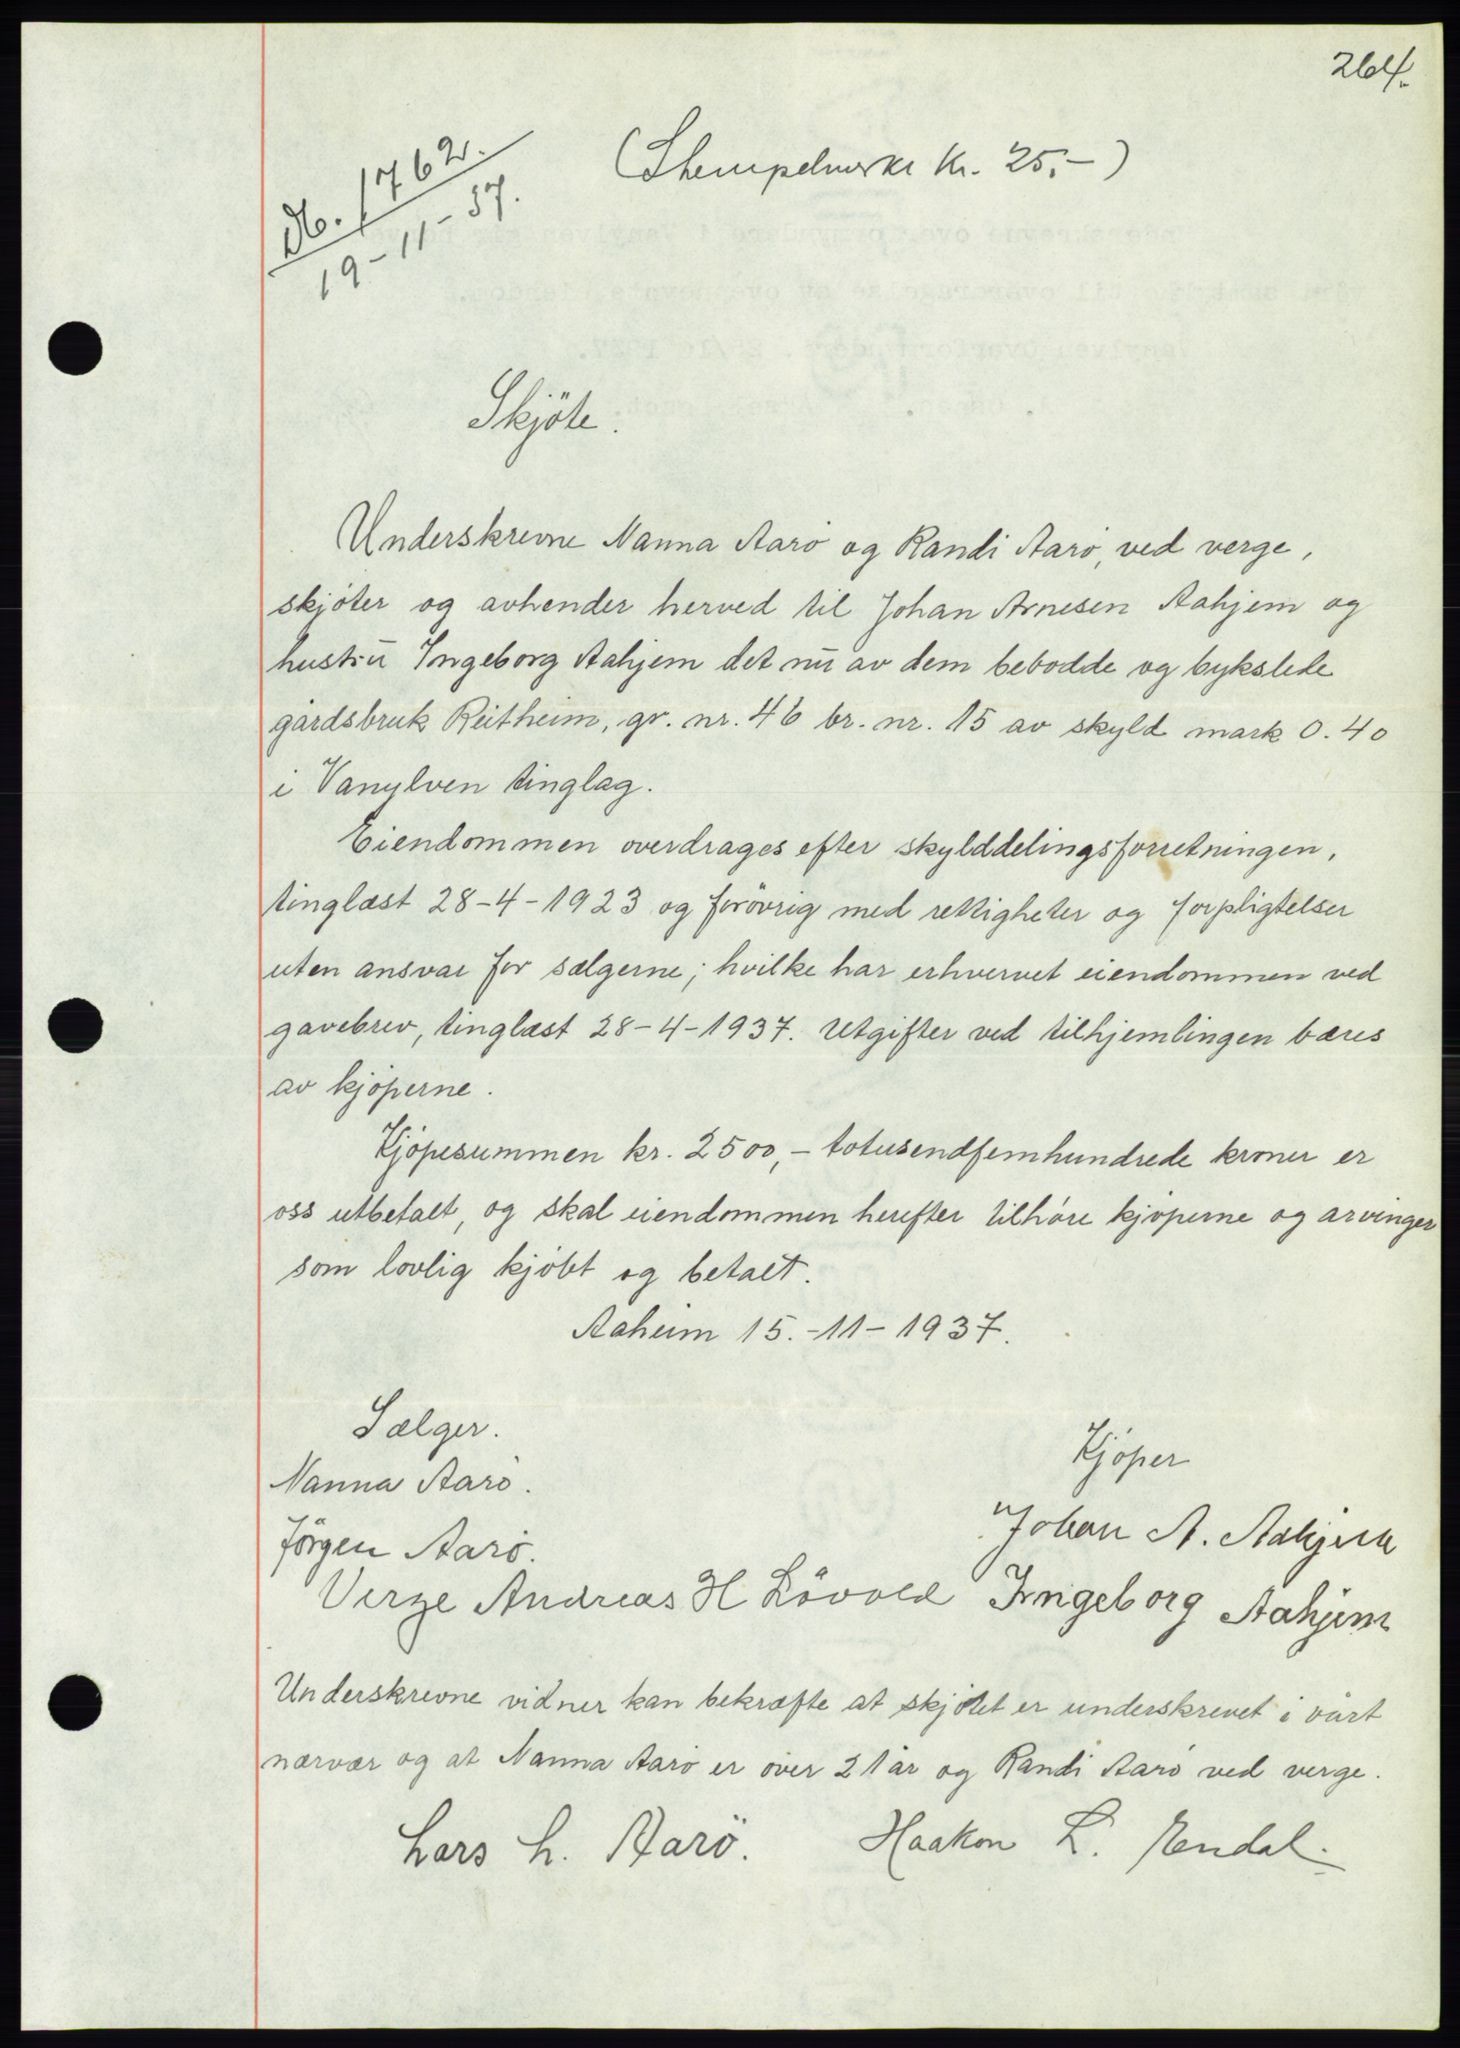 264.
(Stempelmerke kr. 25,-)
Nb. 1762.
19-11-37.
Skjöte.
Underskrevne Nanna Aarö og Randi Aarö, ved verge,
skjöter og avhender herved til Johan Arnesen Aahjem og
hustru Ingeborg Aahjem det nu av dem bebodde og bykslede
gårdsbruk Reitheim, gr. nr. 46 br. nr. 15 av skyld mark 0.40
i Vanylven tinglag.
Eiendommen overdrages efter skylddelingsforretningen,
tinglæst 28-4-1923 og forövrig med rettigheter og forpligtelser
uten ansvar for sælgerne; hvilke har erhvervet eiendommen ved
gavebrev, tinglæst 28-4-1937. Utgifter ved tilhjemlingen bæres
av kjöperne.
Kjöpesummen kr. 2500,- totusendfemhundrede kroner er
oss utbetalt, og skal eiendommen herefter tilhöre kjöperne og arvinger
som lovlig kjöbt og betalt.
Aaheim 15.-11-1937.
Sælger.
Kjöper
Nanna Aarö.
Johan A. Aahjem
Jörgen Aarö.
Verge Andreas H Lövold
Ingeborg Aahjem
Underskrevne vidner kan bekræfte at skjötet er underskrevet i vårt
nærvær og at Nanna Aarö er over 21 år og Randi Aarö ved verge.
Lars L. Aarö.
Haakon L. Endal.